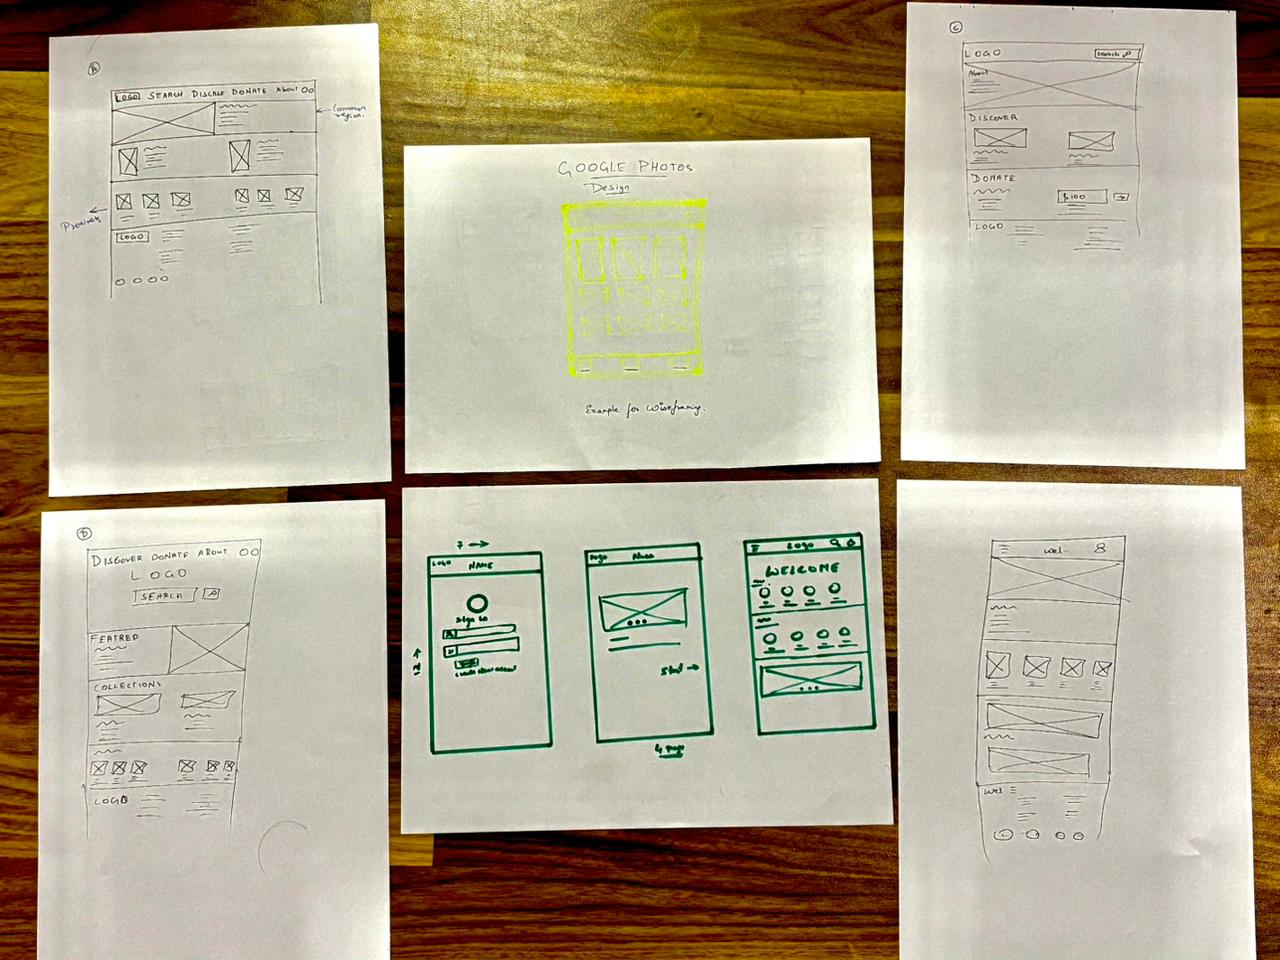 A
LOGO SEARCH DISCASE DONATE About
Common
region.
Proximity
LOGO
GOOGLE PHOTOS
Design
Example for Wireframing.
C
LOGO Search
About
DISCOVER
DONATE
$100
LOGO
D
DISCOVER DONATE ABOUT
LOGO
SEARCH
FEATRED
COLLECTIONS
LOGO
7 →
LOGO NAME
Sign in
Create New account
12 →
Logo Name
Start →
4 Page
Logo
WELCOME
Wel
Wel